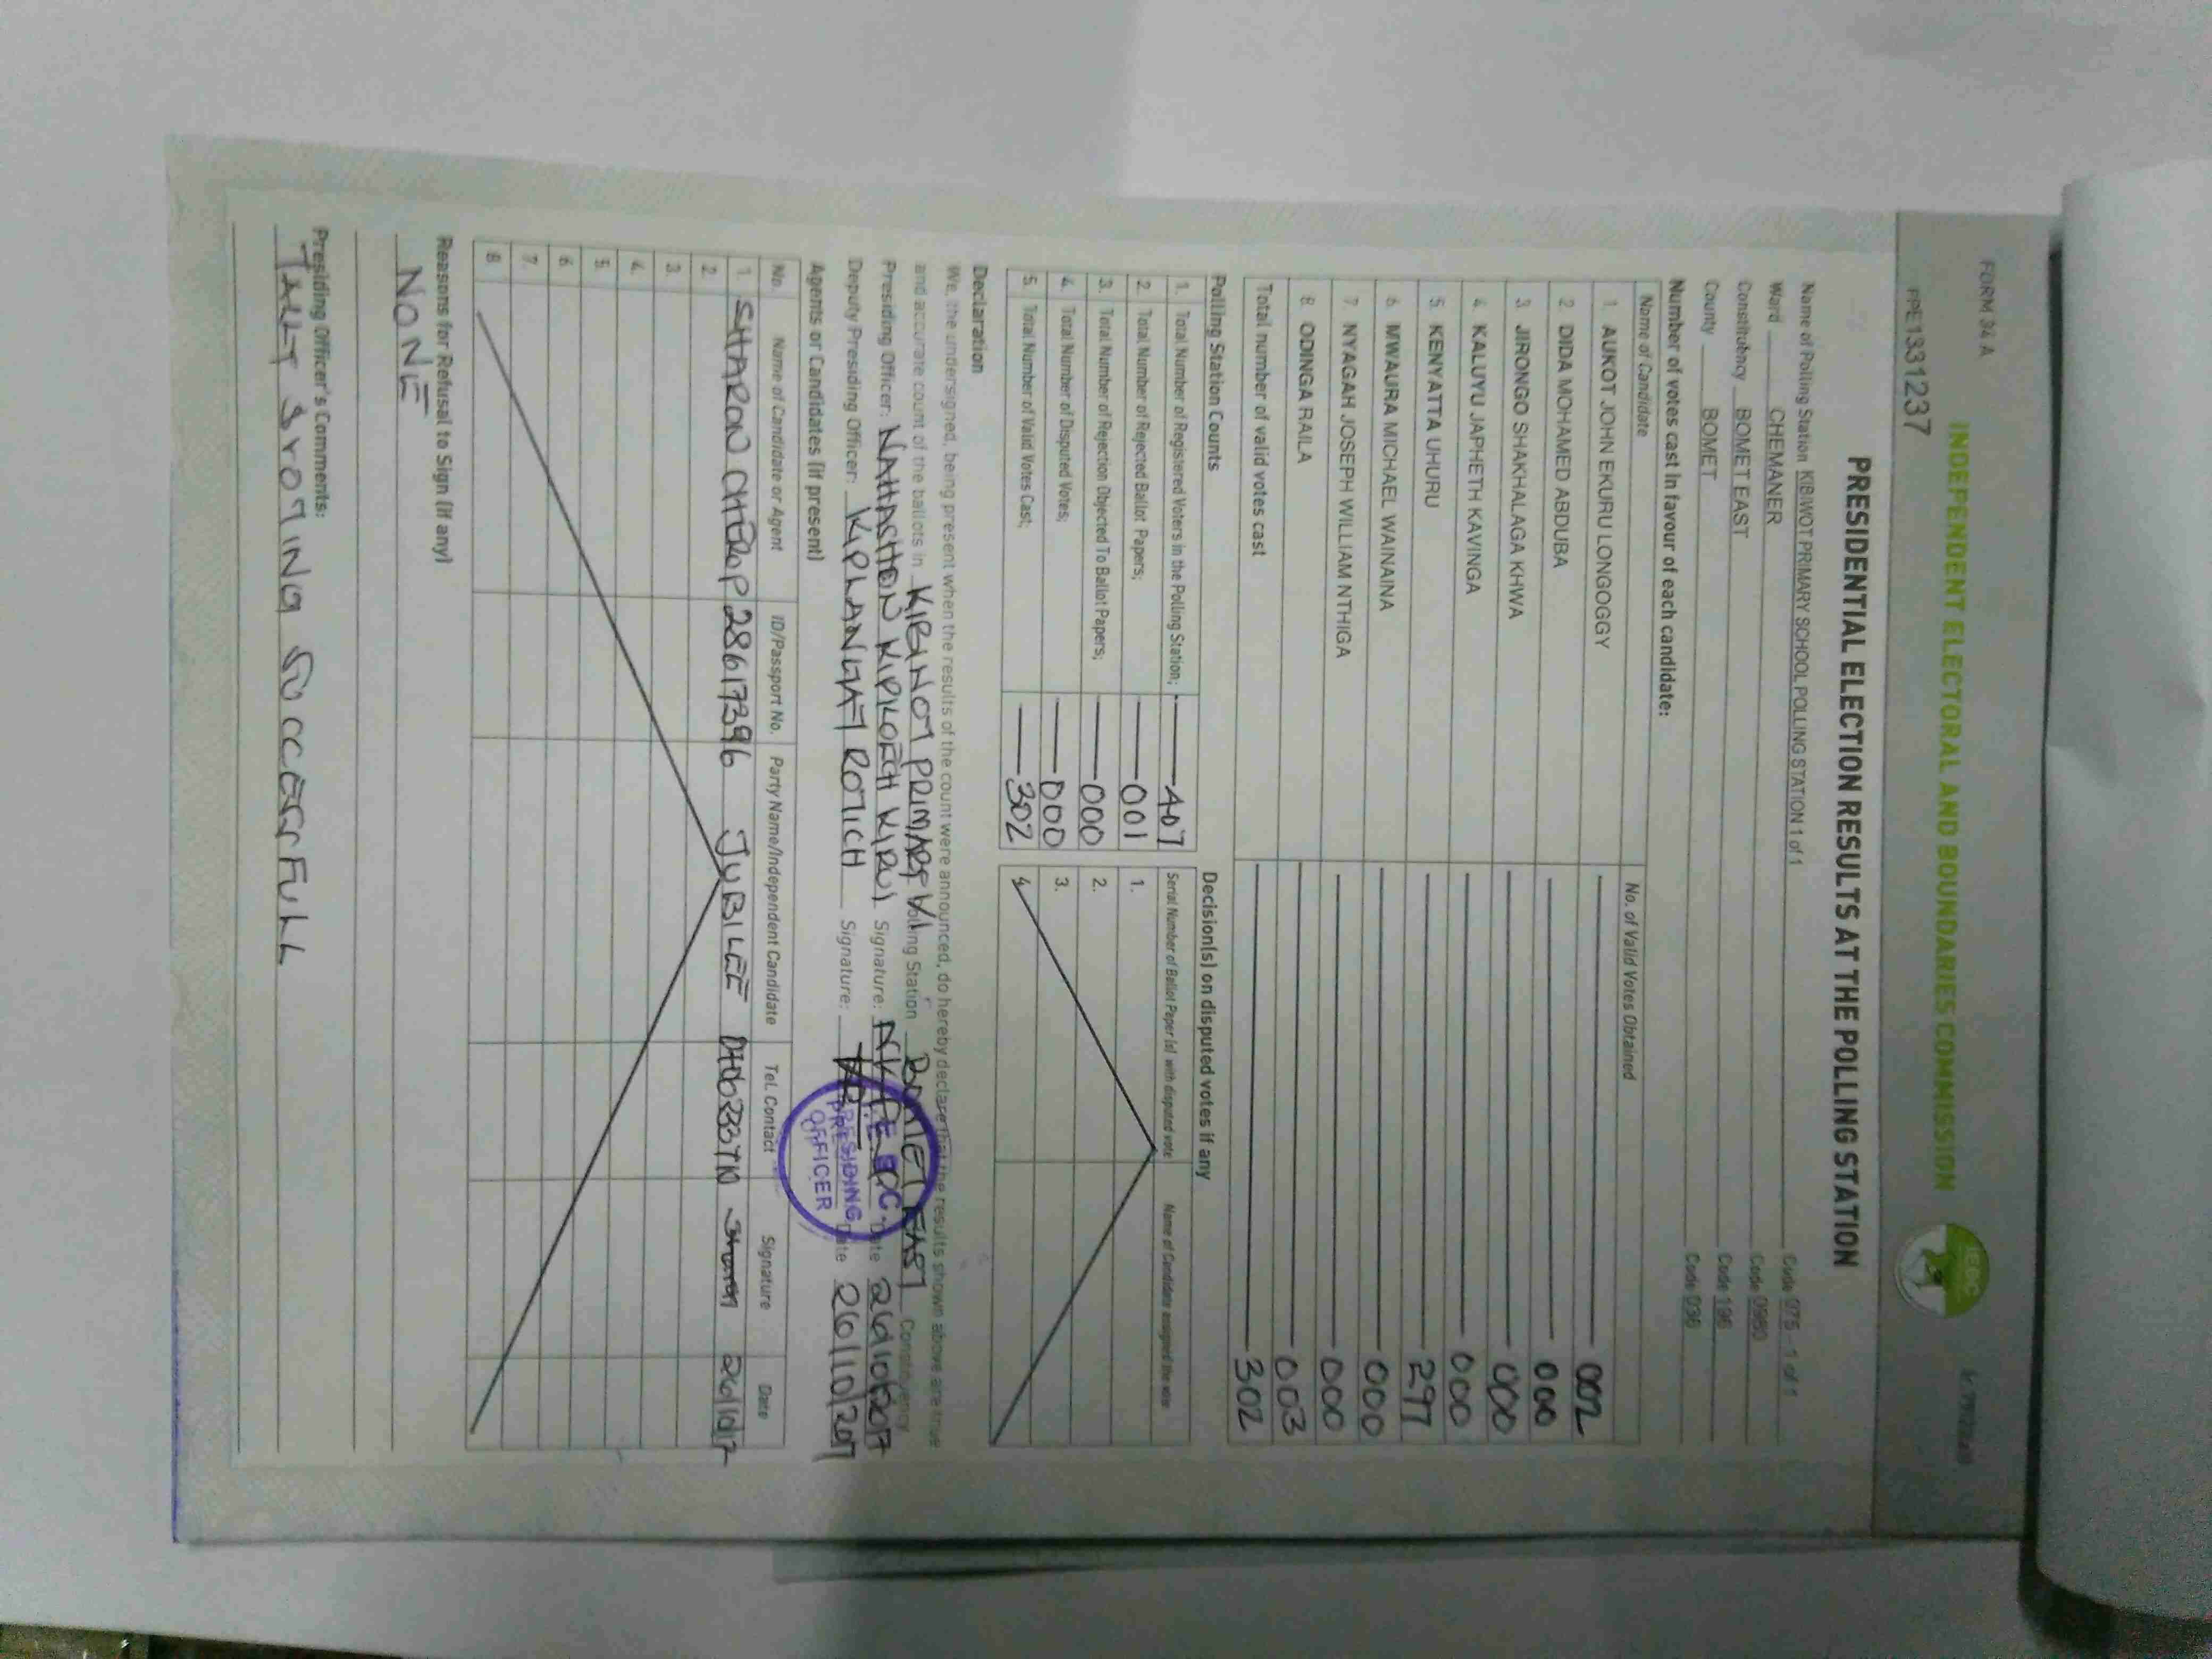 FORM 34 A
INDEPENDENT ELECTORAL AND BOUNDARIES COMMISSION
IEBC
PPE1331237
PRESIDENTIAL ELECTION RESULTS AT THE POLLING STATION
Name of Polling Station KIBIWOT PRIMARY SCHOOL POLLING STATION 1 of 1 Code 075 - 1 of 1
Ward CHEMANER Code 0980
Constituency BOMET EAST Code 196
County BOMET Code 036
Number of votes cast in favour of each candidate:
Name of Candidate No. of Valid Votes Obtained
1 AUKOT JOHN EKURU LONGOGGY 002
2 DIDA MOHAMED ABDUBA 000
3 JIRONGO SHAKHALAGA KHWA 000
4 KALUYU JAPHETH KAVINGA 000
5 KENYATTA UHURU 297
6 MWAURA MICHAEL WAINAINA 000
7 NYAGAH JOSEPH WILLIAM NTHIGA 000
8 ODINGA RAILA 003
Total number of valid votes cast 302
Polling Station Counts
1. Total Number of Registered Voters in the Polling Station; 407
2. Total Number of Rejected Ballot Papers; 001
3. Total Number of Rejection Objected To Ballot Papers; 000
4. Total Number of Disputed Votes; 000
5. Total Number of Valid Votes Cast; 302
Decision(s) on disputed votes if any
Serial Number of Ballot Paper (s) with disputed vote Name of Candidate assigned the vote
1.
2.
3.
4
Declaration
We, the undersigned, being present when the results of the count were announced, do hereby declare that the results shown above are true
and accurate count of the ballots in KIBINOT PRIMARY Polling Station BOMET EAST Constituency
Presiding Officer: NAHASHON KIPLOECH KIRUI Signature: Date 26/10/2017
Deputy Presiding Officer: KIPLANGAT ROTICH Signature: Date 26/10/2017
PRESIDING
OFFICER
Agents or Candidates (if present)
No. Name of Candidate or Agent ID/Passport No. Party Name/Independent Candidate Tel. Contact Signature Date
1. SHARON CHEROP 28617396 JUBILEE Sharon 26/10/17
2.
3.
4.
5.
6.
7.
8.
Reasons for Refusal to Sign (if any)
NONE
Presiding Officer's Comments: